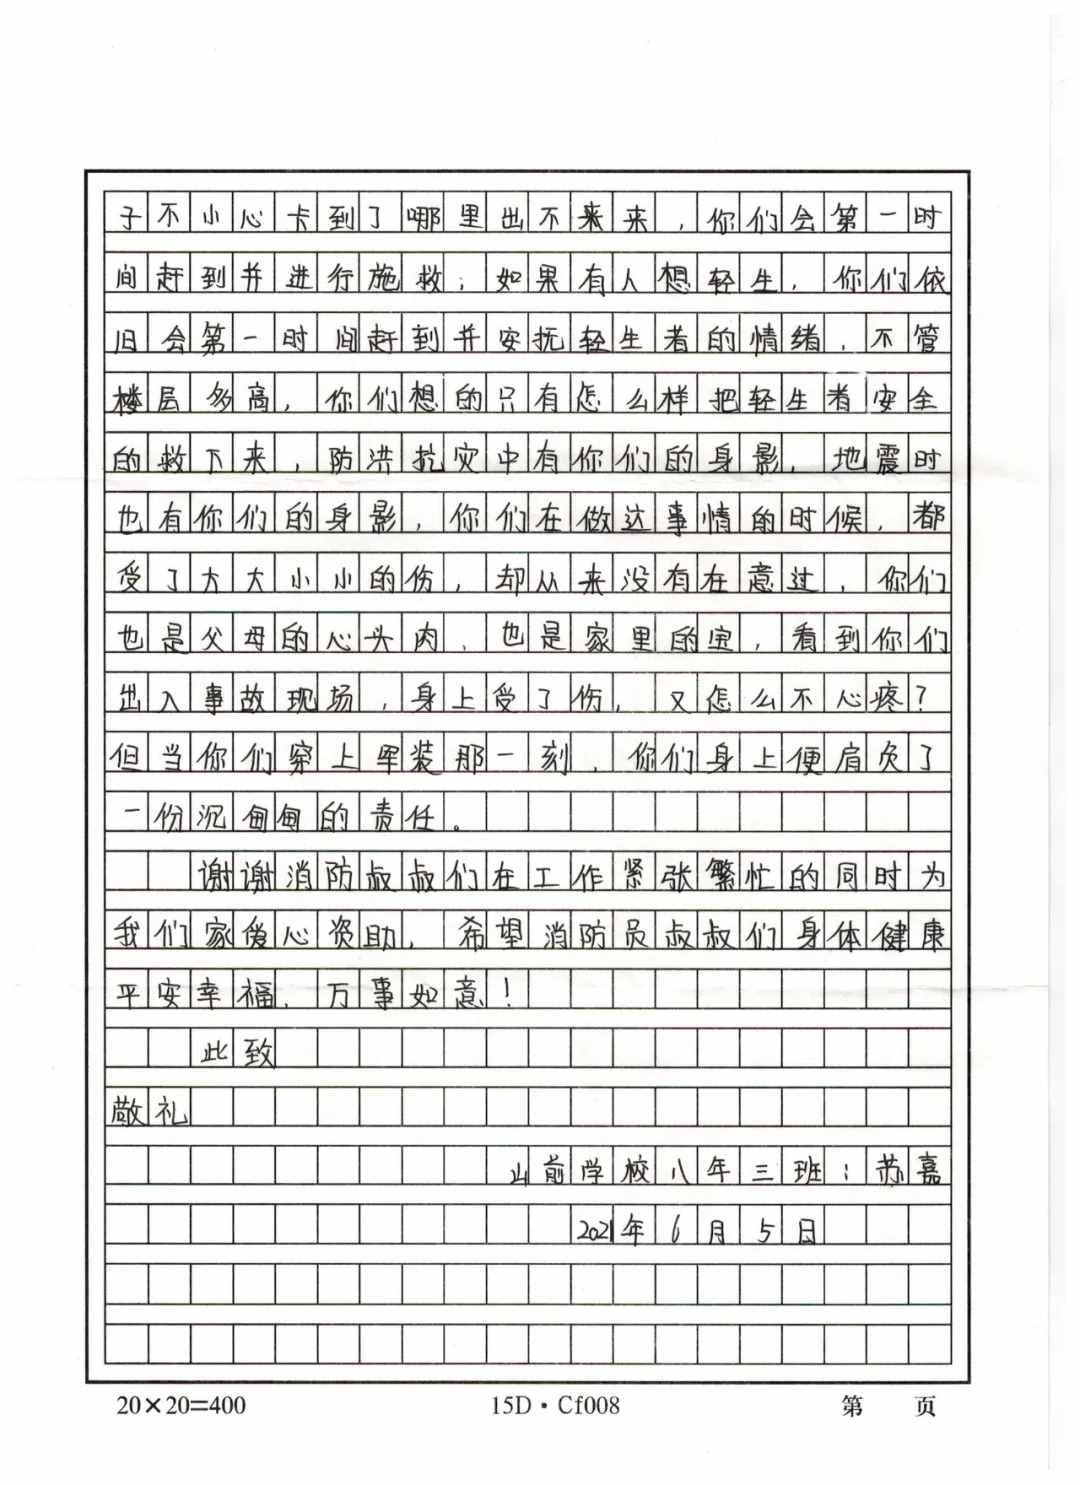 子不小心卡到了哪里出不来来，你们会第一时
间赶到并进行施救；如果有人想轻生，你们依
旧会第一时间赶到并安抚轻生者的情绪，不管
楼层多高，你们想的只有怎么样把轻生者安全
的救下来，防洪抗灾中有你们的身影，地震时
也有你们的身影，你们在做这事情的时候，都
受了大大小小的伤，却从来没有在意过，你们
也是父母的心头肉，也是家里的宝，看到你们
出入事故现场，身上受了伤，又怎么不心疼？
但当你们穿上军装那一刻，你们身上便肩负了
一份沉甸甸的责任。
谢谢消防叔叔们在工作紧张繁忙的同时为
我们家爱心资助，希望消防员叔叔们身体健康
平安幸福，万事如意！
此致
敬礼
山前学校八年三班：苏嘉
2021年6月5日
20×20=400 15D·Cf008 第 页